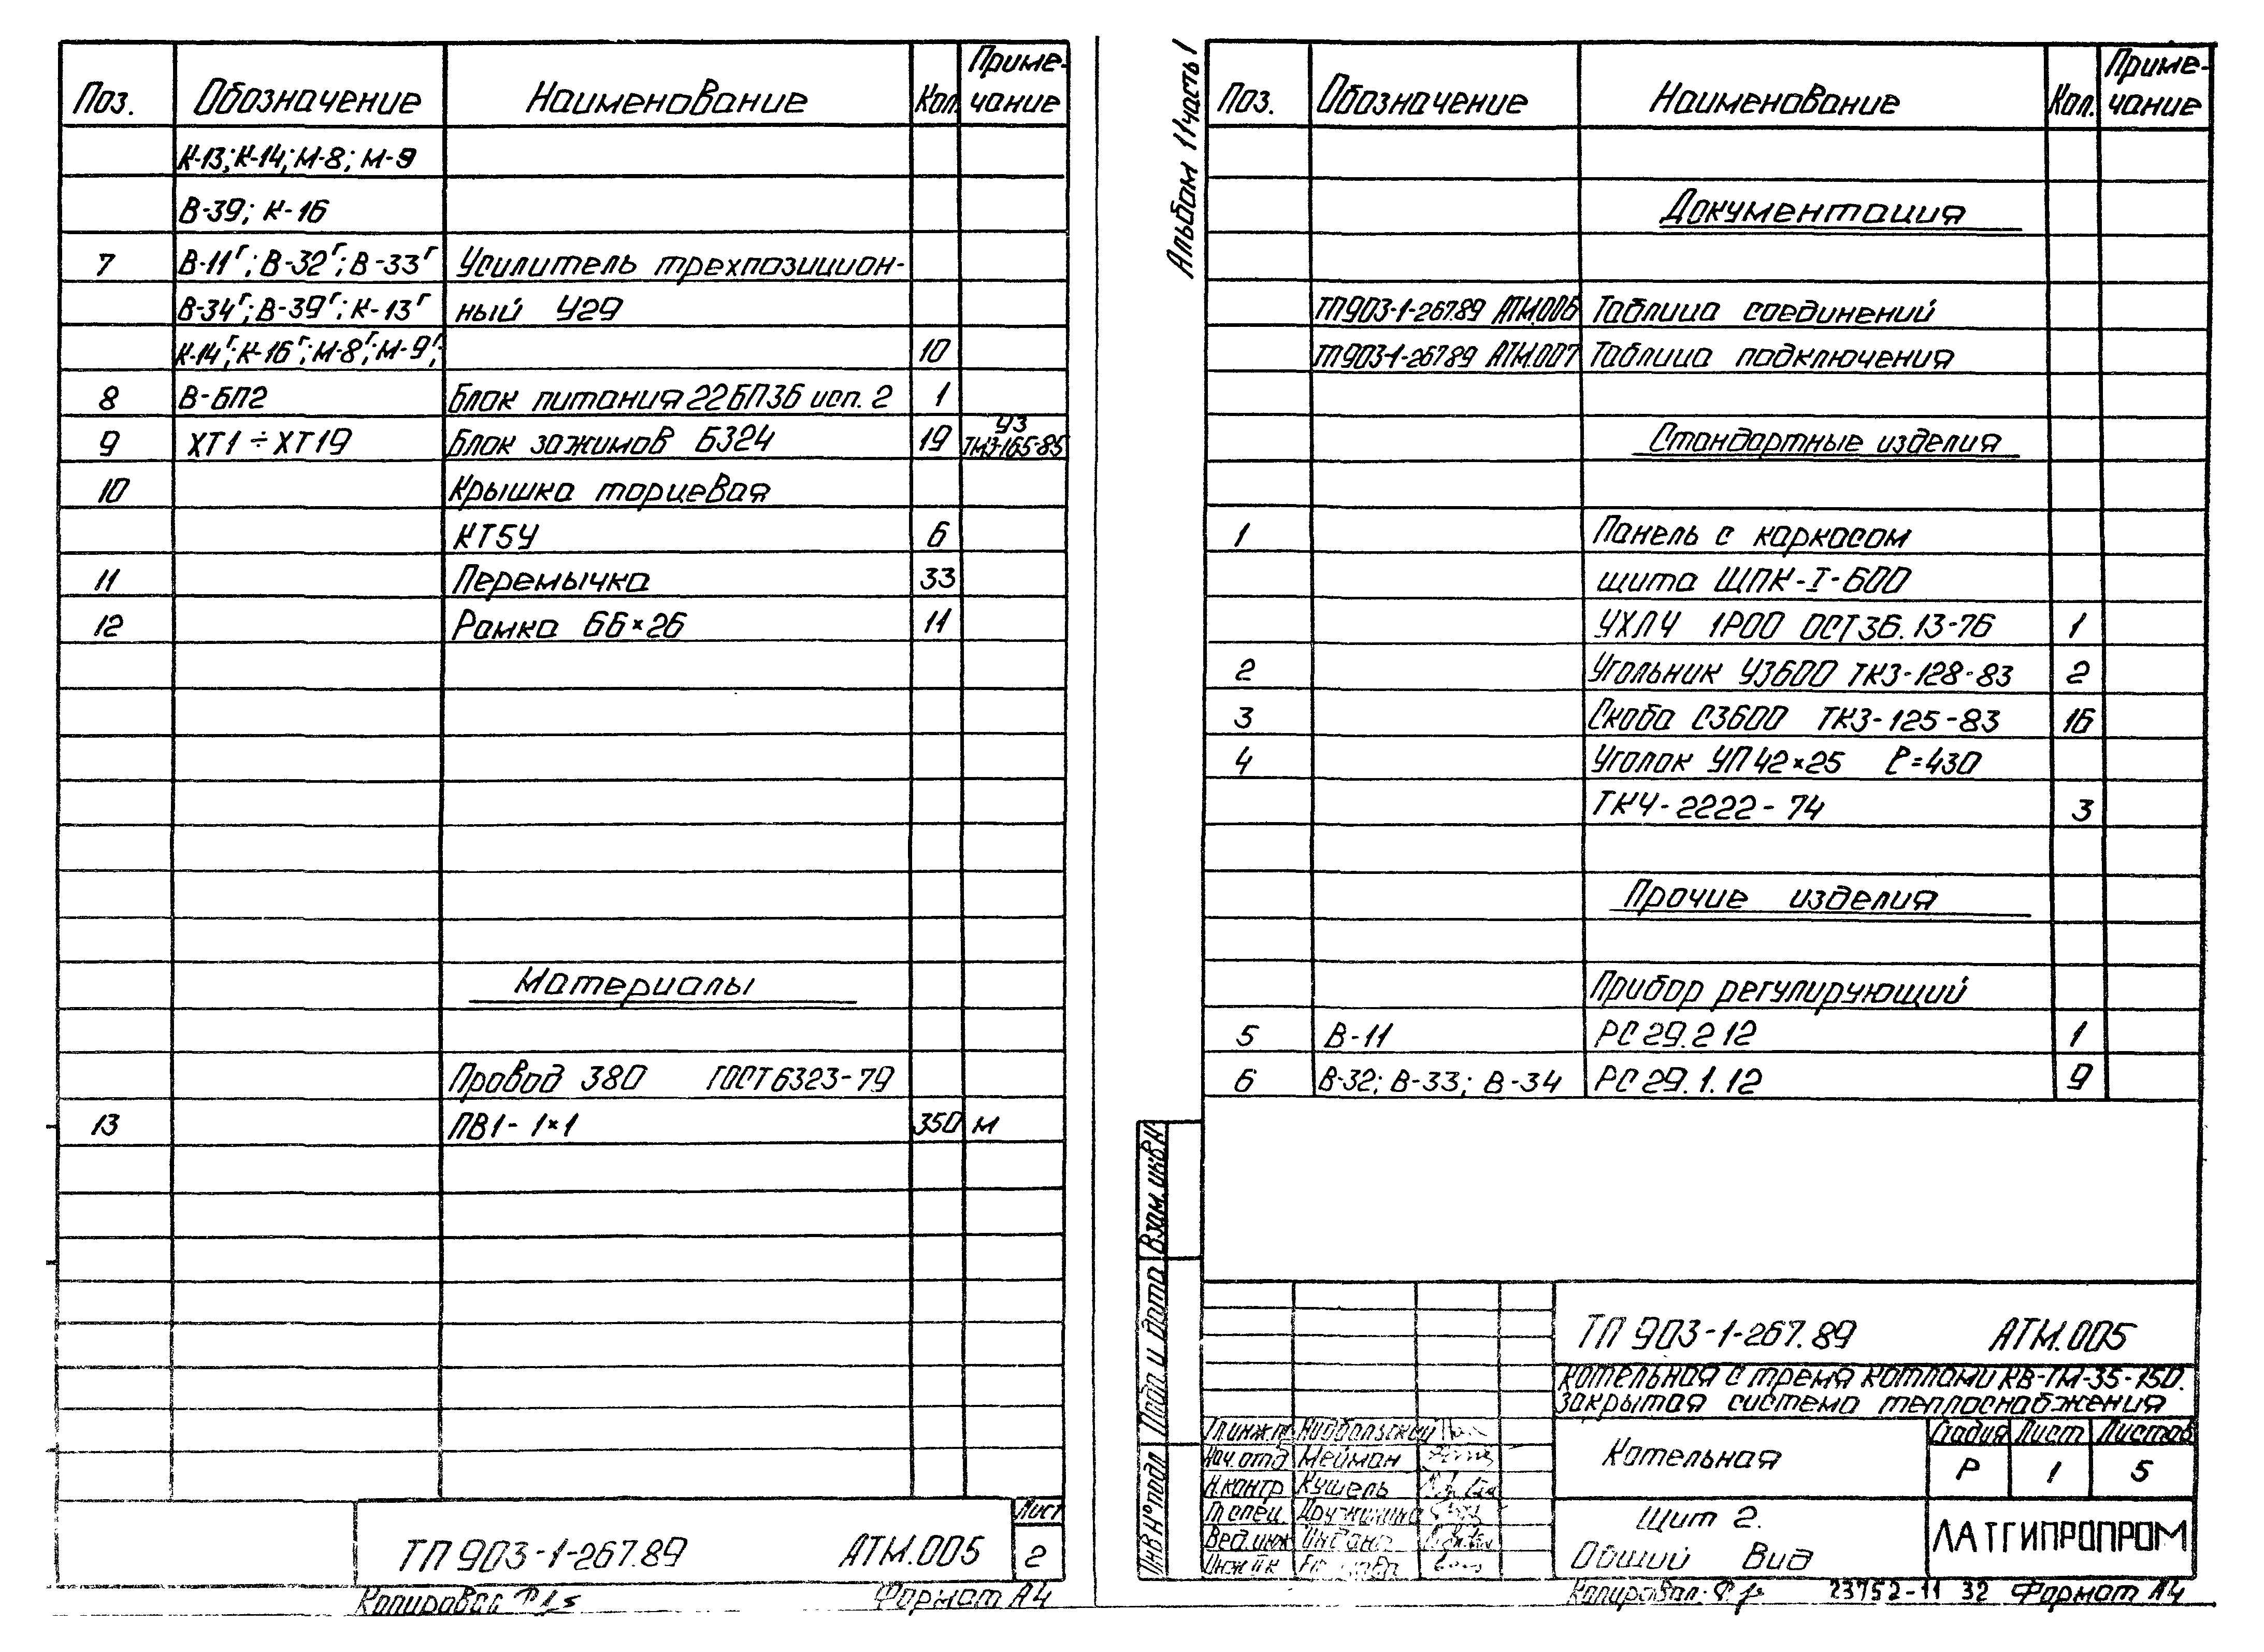 Поз. Обозначение Наименование Кол. Приме-
чание
К-13; К-14; М-8; М-9
В-39; К-16
7 В-11г; В-32г; В-33г Усилитель трехпозицион-
В-34г; В-39г; К-13г ный У29
К-14г; К-16г; М-8г; М-9г; 10
8 В-БП2 Блок питания 22БП36 исп. 2 1
9 ХТ1÷ХТ19 Блок зажимов Б324 19 У3
ТМ3-165-85
10 Крышка торцевая
КТ5У 6
11 Перемычка 33
12 Рамка 66×26 11
Материалы
Провод 380 ГОСТ 6323-79
13 ПВ1-1×1 350 м
ТП 903-1-267.89 АТМ.005
Лист
2
Копировал
Формат А4
Альбом 11 часть 1
Поз. Обозначение Наименование Кол. Приме-
чание
Документация
ТП903-1-267.89 АТМ.006 Таблица соединений
ТП903-1-267.89 АТМ.007 Таблица подключения
Стандартные изделия
1 Панель с каркасом
щита ЩПК-I-600
УХЛ4 1Р00 ОСТ36.13-76 1
2 Угольник У3600 ТК3-128-83 2
3 Скоба С3600 ТК3-125-83 16
4 Уголок УП42×25 ℓ=430
ТК4-2222-74 3
Прочие изделия
Прибор регулирующий
5 В-11 РС29.2 12 1
6 В-32; В-33; В-34 РС29.1.12 9
Взам. инв. N
Подп. и дата
Инв. N° подл
ТП 903-1-267.89 АТМ.005
Котельная с тремя котлами КВ-ГМ-35-150.
Закрытая система теплоснабжения
Котельная
Стадия Лист Листов
Р 1 5
Щит 2.
Общий вид
ЛАТГИПРОПРОМ
Гл.инж.п.
Нач.отд Мейман
Н.контр Кушель
Гл спец. Дружинина
Вед.инж
Инж
Копировал:
23752-11 32 Формат А4